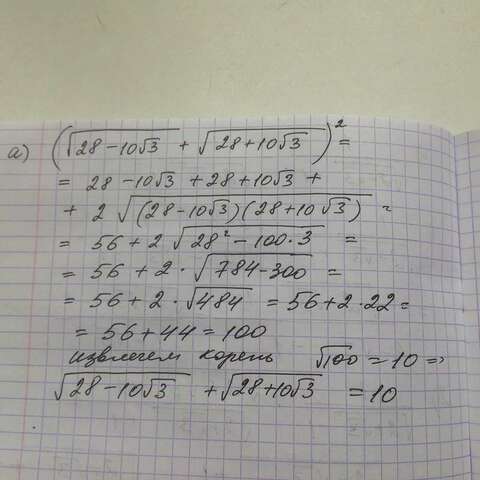 а) (√(28-10√3) + √(28+10√3))² =
= 28 -10√3 + 28 + 10√3 +
+ 2 √((28-10√3)(28+10√3)) =
= 56 + 2 √(28² - 100·3) =
= 56 + 2 · √(784-300) =
= 56 + 2 · √484 = 56 + 2 · 22 =
= 56 + 44 = 100
извлечем корень √100 = 10 =>
√(28-10√3) + √(28+10√3) = 10